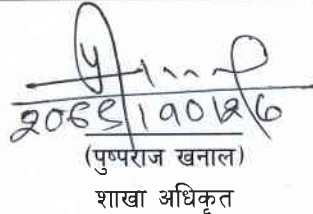 २०६९।१०।२७
(पुष्पराज खनाल)
शाखा अधिकृत